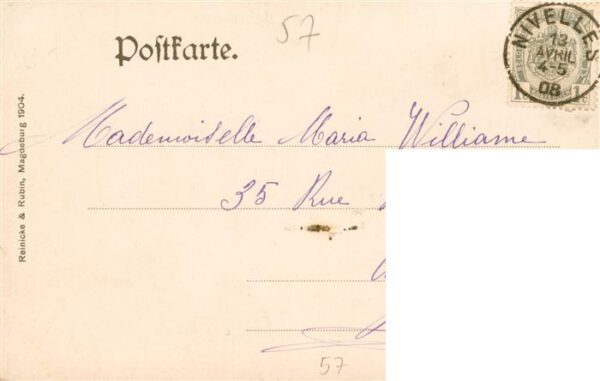 57
Postkarte.
NIVELLES
13
AVRIL
4-5
08
1 1
Mademoiselle Maria Williame
35 Rue
57
Reinicke & Rubin, Magdeburg 1904.